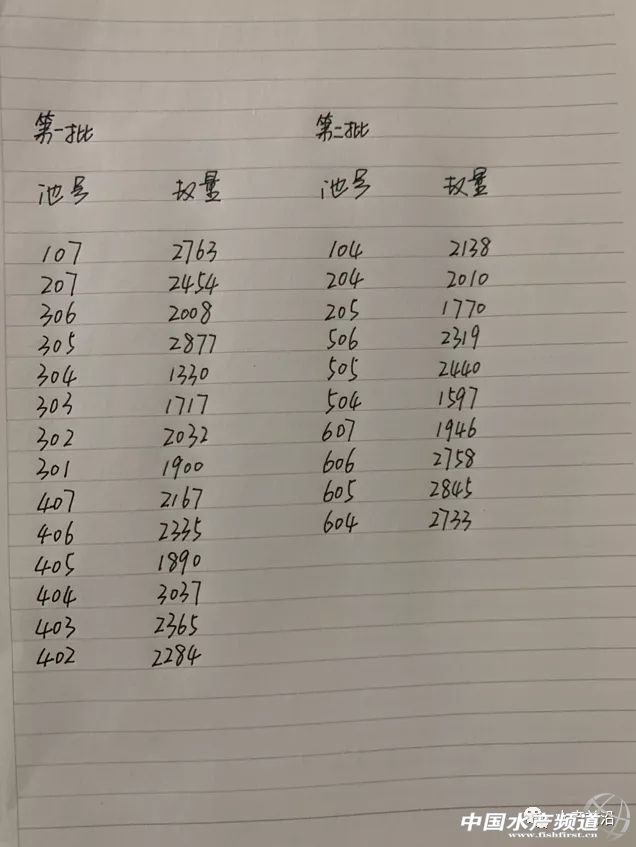 第一批 第二批
池号 放量 池号 放量
107 2763 104 2138
207 2454 204 2010
306 2008 205 1770
305 2877 506 2319
304 1330 505 2440
303 1717 504 1597
302 2032 607 1946
301 1900 606 2758
407 2167 605 2845
406 2335 604 2733
405 1890
404 3037
403 2365
402 2284
中国水产频道
www.fishfirst.cn